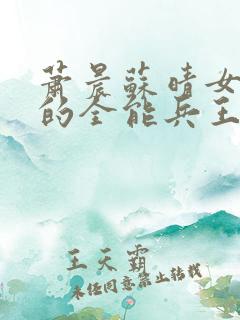 蕭晨蘇晴女
的全能兵王
王天霸
未经同意禁止转载